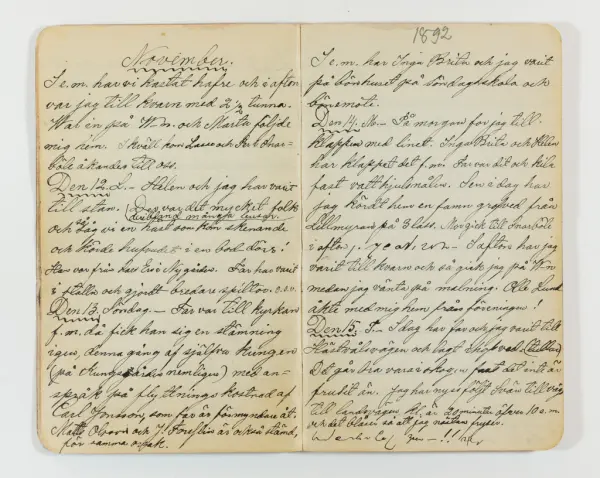 November.
I e.m. har vi kastat hafre och i afton
var jag till kvarn med 2½ tunna.
War in på W-n. och Marta följde
mig hem. I kväll kom Lasse och
böle åkandes till oss.
Den 12. L. – Helen och jag har varit
till stan. Der var det mycket folk
deribland många
och såg vi en häst som kom skenande
och körde hufvudet i en bod dörr!
Han var från Lars Ers Nygården. Far har varit
i stalln och gjort bredare spiltor. e.d.v.
Den 13. Söndag. – Far var till kyrkan
f.m. då fick han sig en stämning
igen, denna gång af själfva kungen
(på Kungs nemligen) med an-
språk på flyttnings kostnad af
Carl Jonsson, som far är förmyndare åt.
Matts och J. Forslin är också stämd,
för samma orsak.
1892
I e.m. har Inga Brita och jag varit
på bönhuset på söndagsskola och
bönemöte.
Den 14. M. – På morgon for jag till
klappen med linet. Inga Brita och Helen
har klappat det f.m. Far var dit och kila
fast vatthjulsmåln. Sen i dag har
jag kördt hem en famn grofved från
Lillmyran på Blass. Morgick till Snarböle
i afton, – I afton har jag
varit till kvarn och så gick jag på W-n
medan jag vänta på malning. Olle Lund
åkte med mig hem från föreningen!
Den 15. T. – I dag har far och jag varit till
och lagt skogsved (stubben)
Det går bra vara i skogen just det inte är
frudit än. Jag har nyss följt Svär till väg
till landsvägen. Kl. är 20 minuter öfver 10 e.m.
och det blåser så att jag nästan fryser.